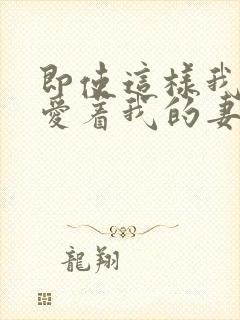 即使這樣我
愛着我的妻
龍翔